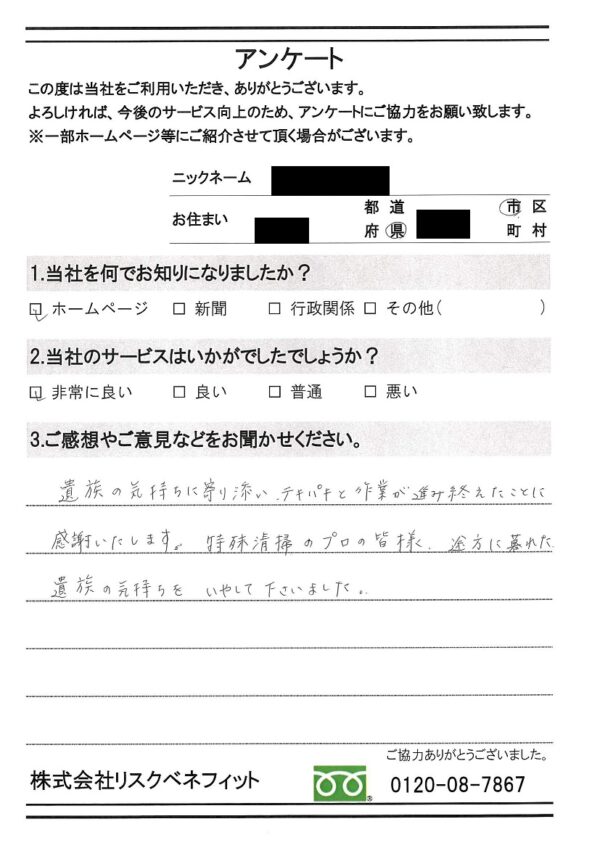 アンケート
この度は当社をご利用いただき、ありがとうございます。
よろしければ、今後のサービス向上のため、アンケートにご協力をお願い致します。
※一部ホームページ等にご紹介させて頂く場合がございます。
ニックネーム
お住まい 都 道 市 区
府 県 町 村
1.当社を何でお知りになりましたか？
ホームページ □ 新聞 □ 行政関係 □ その他( )
2.当社のサービスはいかがでしたでしょうか？
非常に良い □ 良い □ 普通 □ 悪い
3.ご感想やご意見などをお聞かせください。
遺族の気持ちに寄り添い、テキパキと作業が進み終えたことに
感謝いたします。特殊清掃のプロの皆様、途方に暮れた
遺族の気持ちを いやして下さいました。
ご協力ありがとうございました。
株式会社リスクベネフィット 0120-08-7867